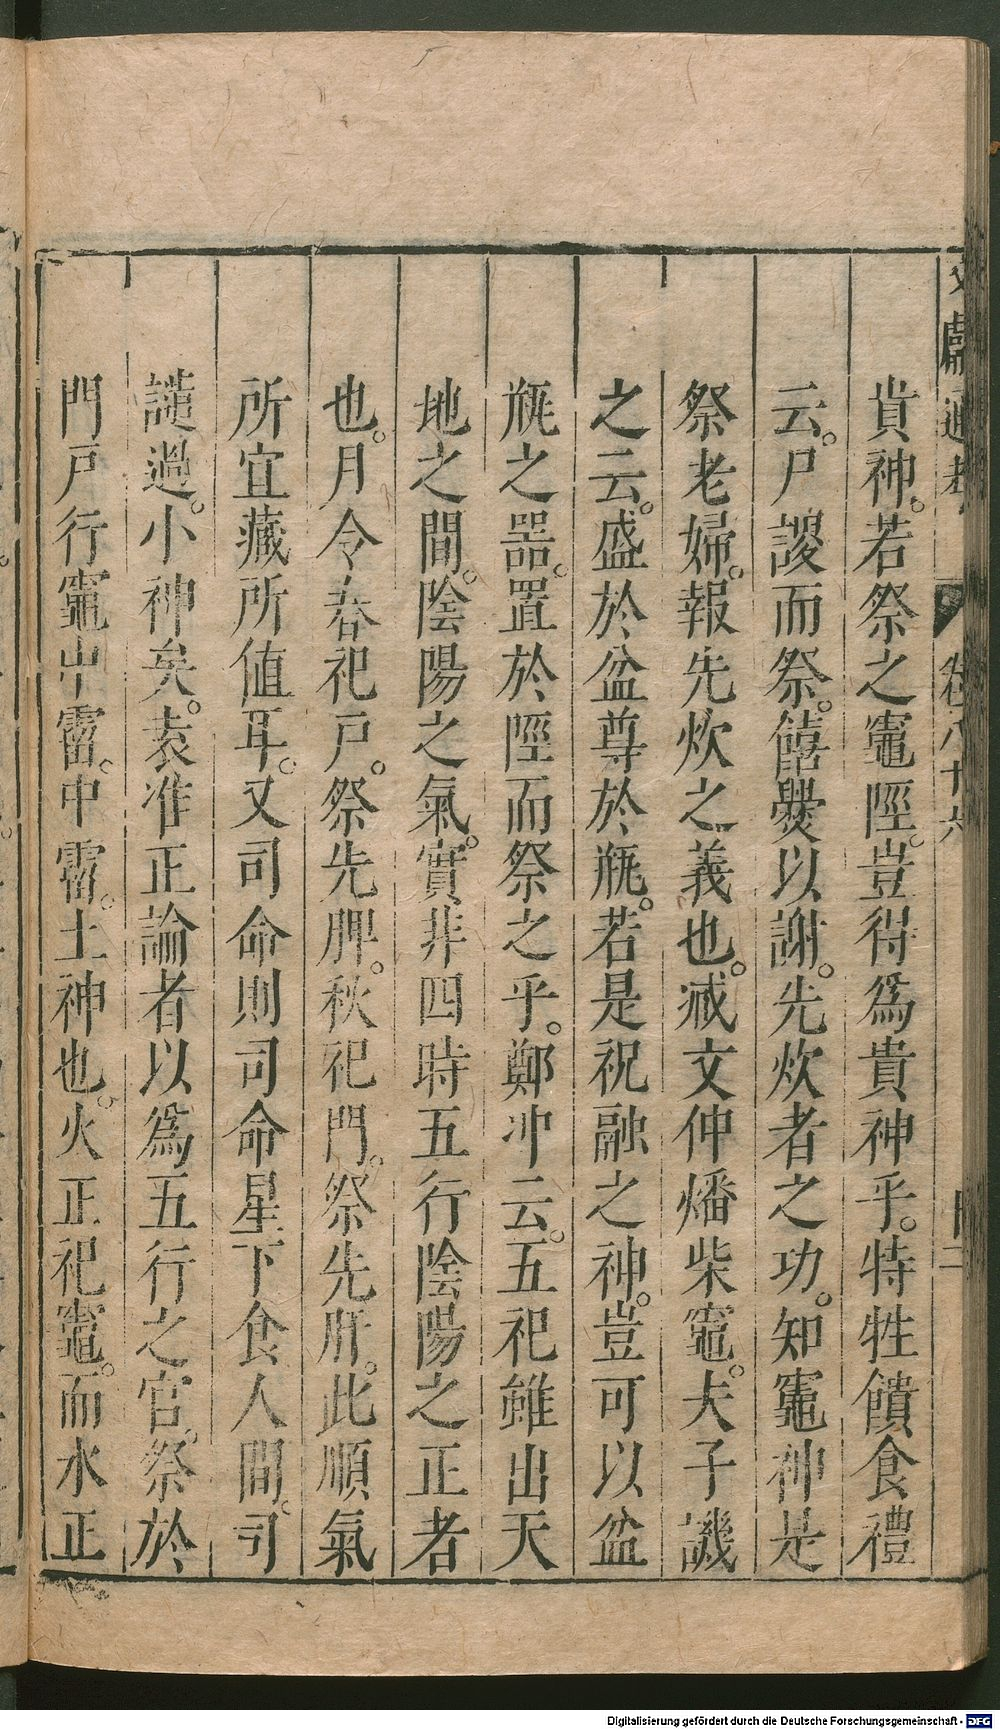 文獻通考 卷八十六
貴神。若祭之竈陘。豈得爲貴神乎。特牲饋食禮
云。尸謖而祭。饎㸑以謝。先炊者之功。知竈神是
祭老婦。報先炊之義也。臧文仲燔柴竈。夫子譏
之云。盛於盆尊於瓶。若是祝融之神。豈可以盆
瓶之器。置於陘而祭之乎。鄭冲云。五祀雖出天
地之間。陰陽之氣。實非四時五行陰陽之正者
也。月令春祀戸。祭先脾。秋祀門。祭先肝。此順氣
所宜藏所值耳。又司命則司命星下食人間。司
譴過。小神矣。袁准正論者以爲五行之官。祭於
門戸行竈中霤。中霤。土神也。火正祀竈。而水正
Digitalisierung gefördert durch die Deutsche Forschungsgemeinschaft - DFG